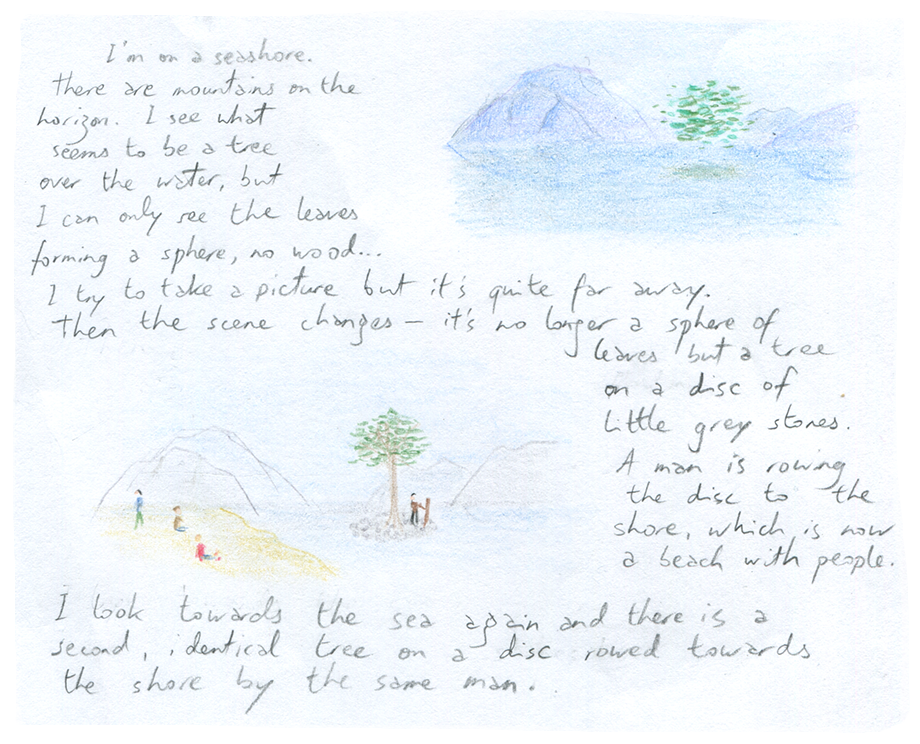 I'm on a seashore.
There are mountains on the
horizon. I see what
seems to be a tree
over the water, but
I can only see the leaves
forming a sphere, no wood...
I try to take a picture but it's quite far away.
Then the scene changes – it's no longer a sphere of
leaves but a tree
on a disc of
little grey stones.
A man is rowing
the disc to the
shore, which is now
a beach with people.
I look towards the sea again and there is a
second, identical tree on a disc rowed towards
the shore by the same man.